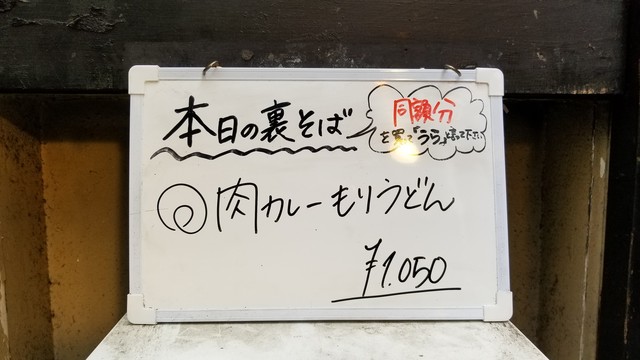 本日の裏そば
同額分
を買って「うら」と言って下さい
肉カレーもりうどん
¥1.050